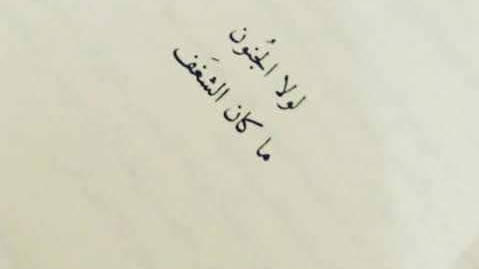 لولا الجُنون
ما كان الشغَف